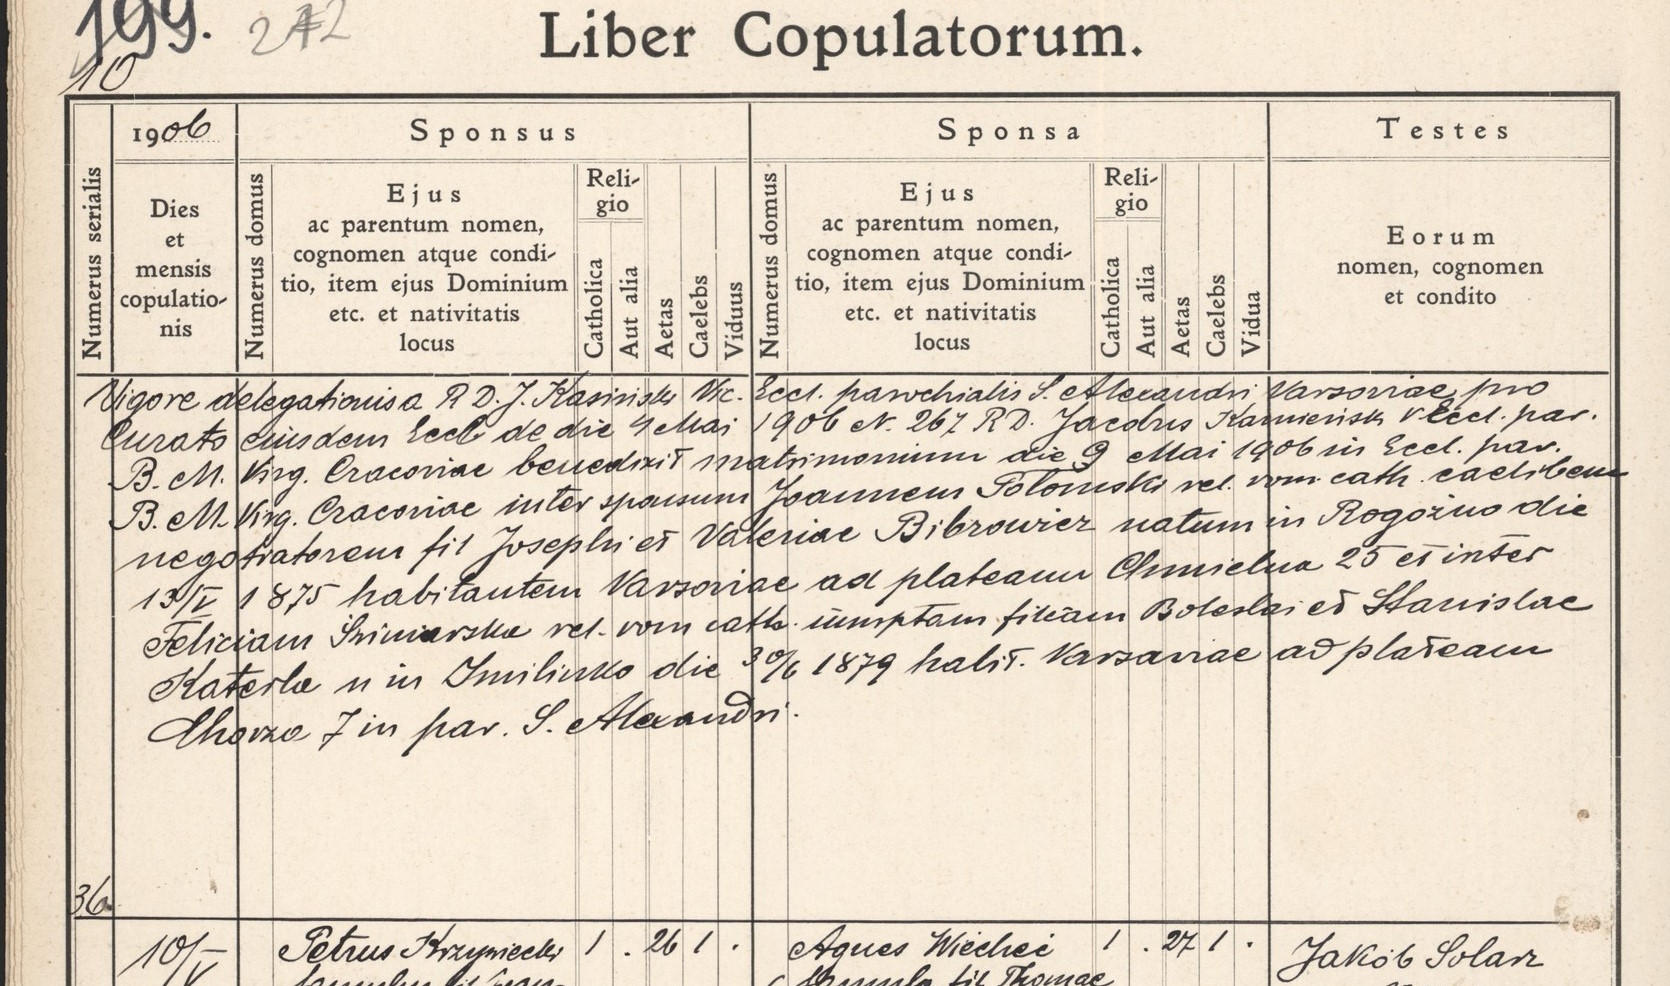 199. 242
10
Liber Copulatorum.
Numerus serialis
1906
Dies
et
mensis
copulatio-
nis
Sponsus
Numerus domus
Ejus
ac parentum nomen,
cognomen atque condi-
tio, item ejus Dominium
etc. et nativitatis
locus
Reli-
gio
Catholica
Aut alia
Aetas
Caelebs
Viduus
Sponsa
Numerus domus
Ejus
ac parentum nomen,
cognomen atque condi-
tio, item ejus Dominium
etc. et nativitatis
locus
Reli-
gio
Catholica
Aut alia
Aetas
Caelebs
Vidua
Testes
Eorum
nomen, cognomen
et condito
Vigore delegationis a R D. J. Kasiński Vic. Eccl. parochialis S. Alexandri Varsoviae, pro
Curato eiusdem Eccl de die 4 Mai 1906 N. 267 R D. Jacobus Kamieński V Eccl. par.
B. M. Virg. Cracoviae benedixit matrimonium die 9 Mai 1906 in Eccl. par.
B. M. Virg. Cracoviae inter sponsum Joannem Połomski rel. rom. cath. caelibem
negotiatorem fil Josephi et Valeriae Bibrowicz natum in Rogoźno die
13/V 1875 habitantem Varsoviae ad plateam Chmielna 25 et inter
Feliciam rel. rom cath. innuptam filiam Boleslai et Stanislae
Katerla n in die 30/6 1879 habit. Varsaviae ad plateam
7 in par. S. Alexandri.
36
10/V
Petrus Krzywiecki 1 . 26 1 .
Agnes Wiecheć 1 . 27 1 .
Jakób Solarz
fil Thomae